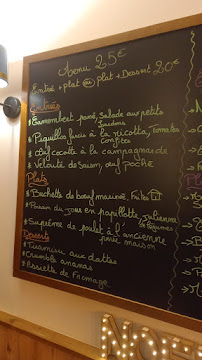 Menu 25€
Entrée + plat ou plat + Dessert 20€
Entrées
* Camembert pané, salade aux petits
lardons
* Piquillos farcis à la ricotta, tomates
confites
* Œuf cocotte à la campagnarde
* Velouté de saison, œuf poché
Plats
* Brochette de bœuf mariné, frites
* Poisson du jour en papillotte, julienne
de légumes
* Suprême de poulet à l'ancienne
purée maison
Desserts
* Tiramisu aux dattes
* Crumble ananas
* Assiette de fromage